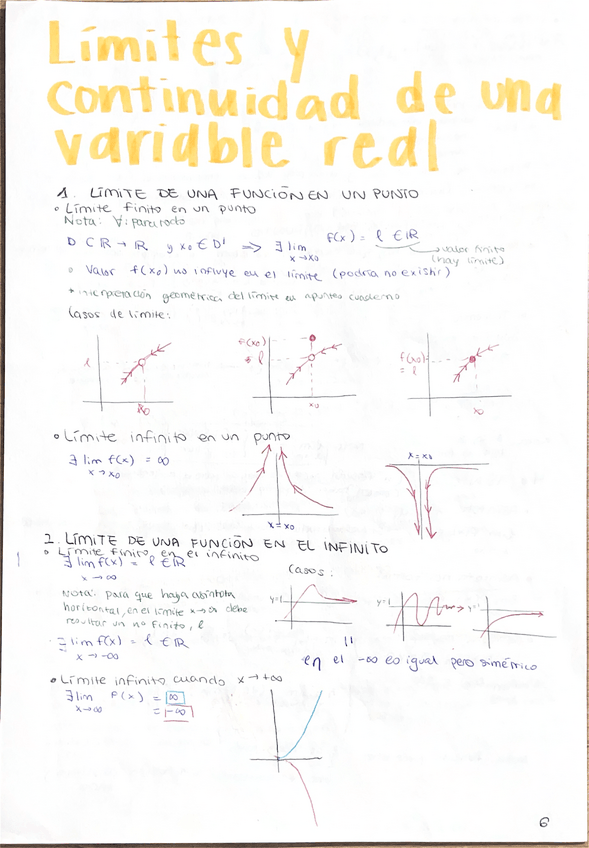 Límites y
continuidad de una
variable real
1. LÍMITE DE UNA FUNCIÓN EN UN PUNTO
• Límite finito en un punto
Nota: ∀: para todo
D ⊂ ℝ → ℝ y x₀ ∈ D' ⇒ ∃ lim f(x) = l ∈ ℝ
x→x₀
valor finito
(hay límite)
• Valor f(x₀) no influye en el límite (podría no existir)
* interpretación geométrica del límite en apuntes cuaderno
Casos de límite:
l
x₀
f(x₀)
l
x₀
f(x₀)
= l
x₀
• Límite infinito en un punto
∃ lim f(x) = ∞
x→x₀
x=x₀
x=x₀
2. LÍMITE DE UNA FUNCIÓN EN EL INFINITO
• Límite finito en el infinito
∃ lim f(x) = l ∈ ℝ
x→∞
Casos:
Nota: para que haya asíntota
horizontal, en el límite x→∞ debe
resultar un nº finito, l
y=l
y=l
y=l
∃ lim f(x) = l ∈ ℝ
x→-∞
en el -∞ es igual pero simétrico
• Límite infinito cuando x→+∞
∃ lim f(x) = ∞
x→∞ = -∞
6